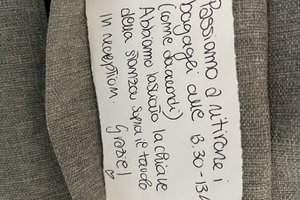 Passiamo a ritirare i
bagagli alle 13.30-13.45
(come d'accordo)
Abbiamo lasciato la chiave
della stanza sopra il tavolo
in reception.
Grazie!